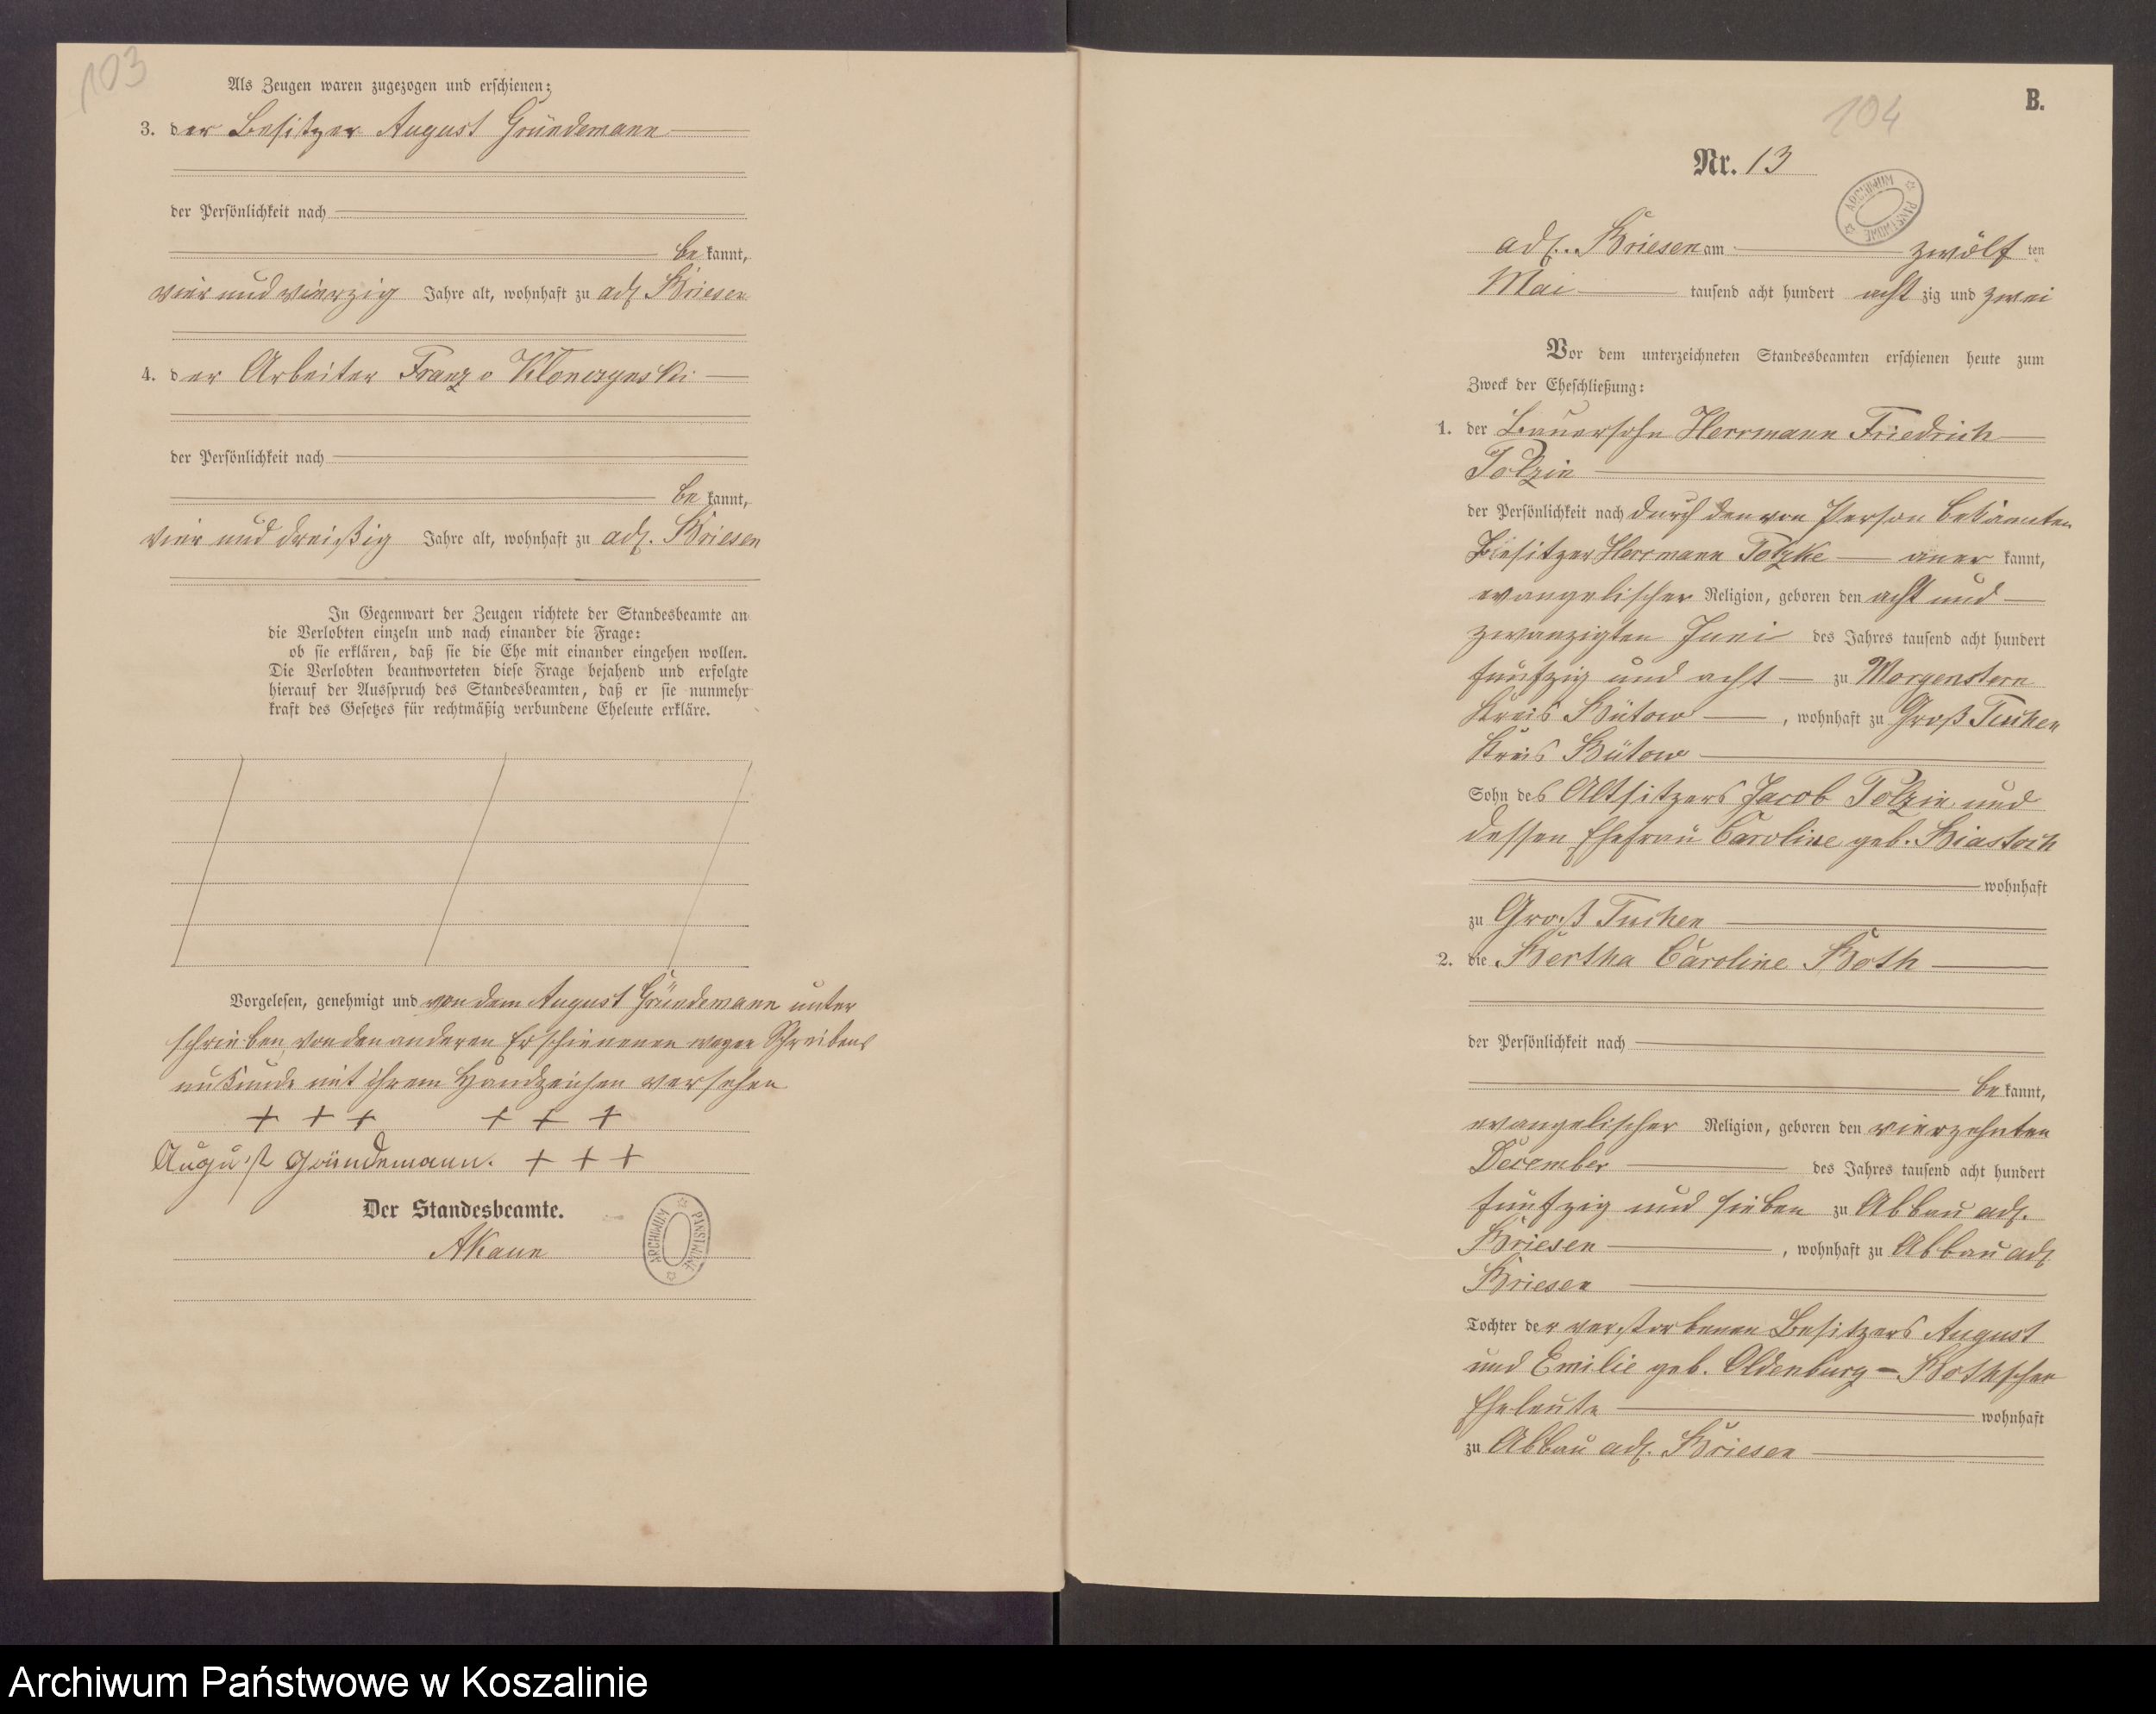 103
Als Zeugen waren zugezogen und erschienen:
3. der Besitzer August Gründemann
der Persönlichkeit nach
be kannt,
vier und vierzig Jahre alt, wohnhaft zu adl. Briesen
4. der Arbeiter Franz v Klonczynski
der Persönlichkeit nach
be kannt,
vier und dreißig Jahre alt, wohnhaft zu adl. Briesen
In Gegenwart der Zeugen richtete der Standesbeamte an
die Verlobten einzeln und nach einander die Frage:
ob sie erklären, daß sie die Ehe mit einander eingehen wollen.
Die Verlobten beantworteten diese Frage bejahend und erfolgte
hierauf der Ausspruch des Standesbeamten, daß er sie nunmehr
kraft des Gesetzes für rechtmäßig verbundene Eheleute erkläre.
Vorgelesen, genehmigt und von dem August Gründemann unter
schrieben, von den anderen Erschienenen wegen Schreibens
unkunde mit ihrem Handzeichen versehen
+ + + + + +
August Gründemann. + + +
Der Standesbeamte.
AKaun
ARCHIWUM PAŃSTWOWE
B.
104
Nr. 13
ARCHIWUM PAŃSTWOWE
adl. Briesen am zwölf ten
Mai tausend acht hundert acht zig und zwei
Vor dem unterzeichneten Standesbeamten erschienen heute zum
Zweck der Eheschließung:
1. der Bauersohn Herrmann Friedrich
Polzin
der Persönlichkeit nach durch den von Person bekannten
Besitzer Herrmann Totzke aner kannt,
evangelischer Religion, geboren den acht und
zwanzigten Juni des Jahres tausend acht hundert
funfzig und acht zu Morgenstern
Kreis Bütow, wohnhaft zu Groß Tuchen
Kreis Bütow
Sohn des Altsitzers Jacob Polzin und
dessen Ehefrau Caroline geb. Biastoch
wohnhaft
zu Groß Tuchen
2. die Bertha Caroline Both
der Persönlichkeit nach
be kannt,
evangelischer Religion, geboren den vierzehnten
December des Jahres tausend acht hundert
funfzig und sieben zu Abbau adl.
Briesen, wohnhaft zu Abbau adl.
Briesen
Tochter der verstorbenen Besitzers August
und Emilie geb. Oldenburg - Bothschen
Eheleute wohnhaft
zu Abbau adl. Briesen
Archiwum Państwowe w Koszalinie